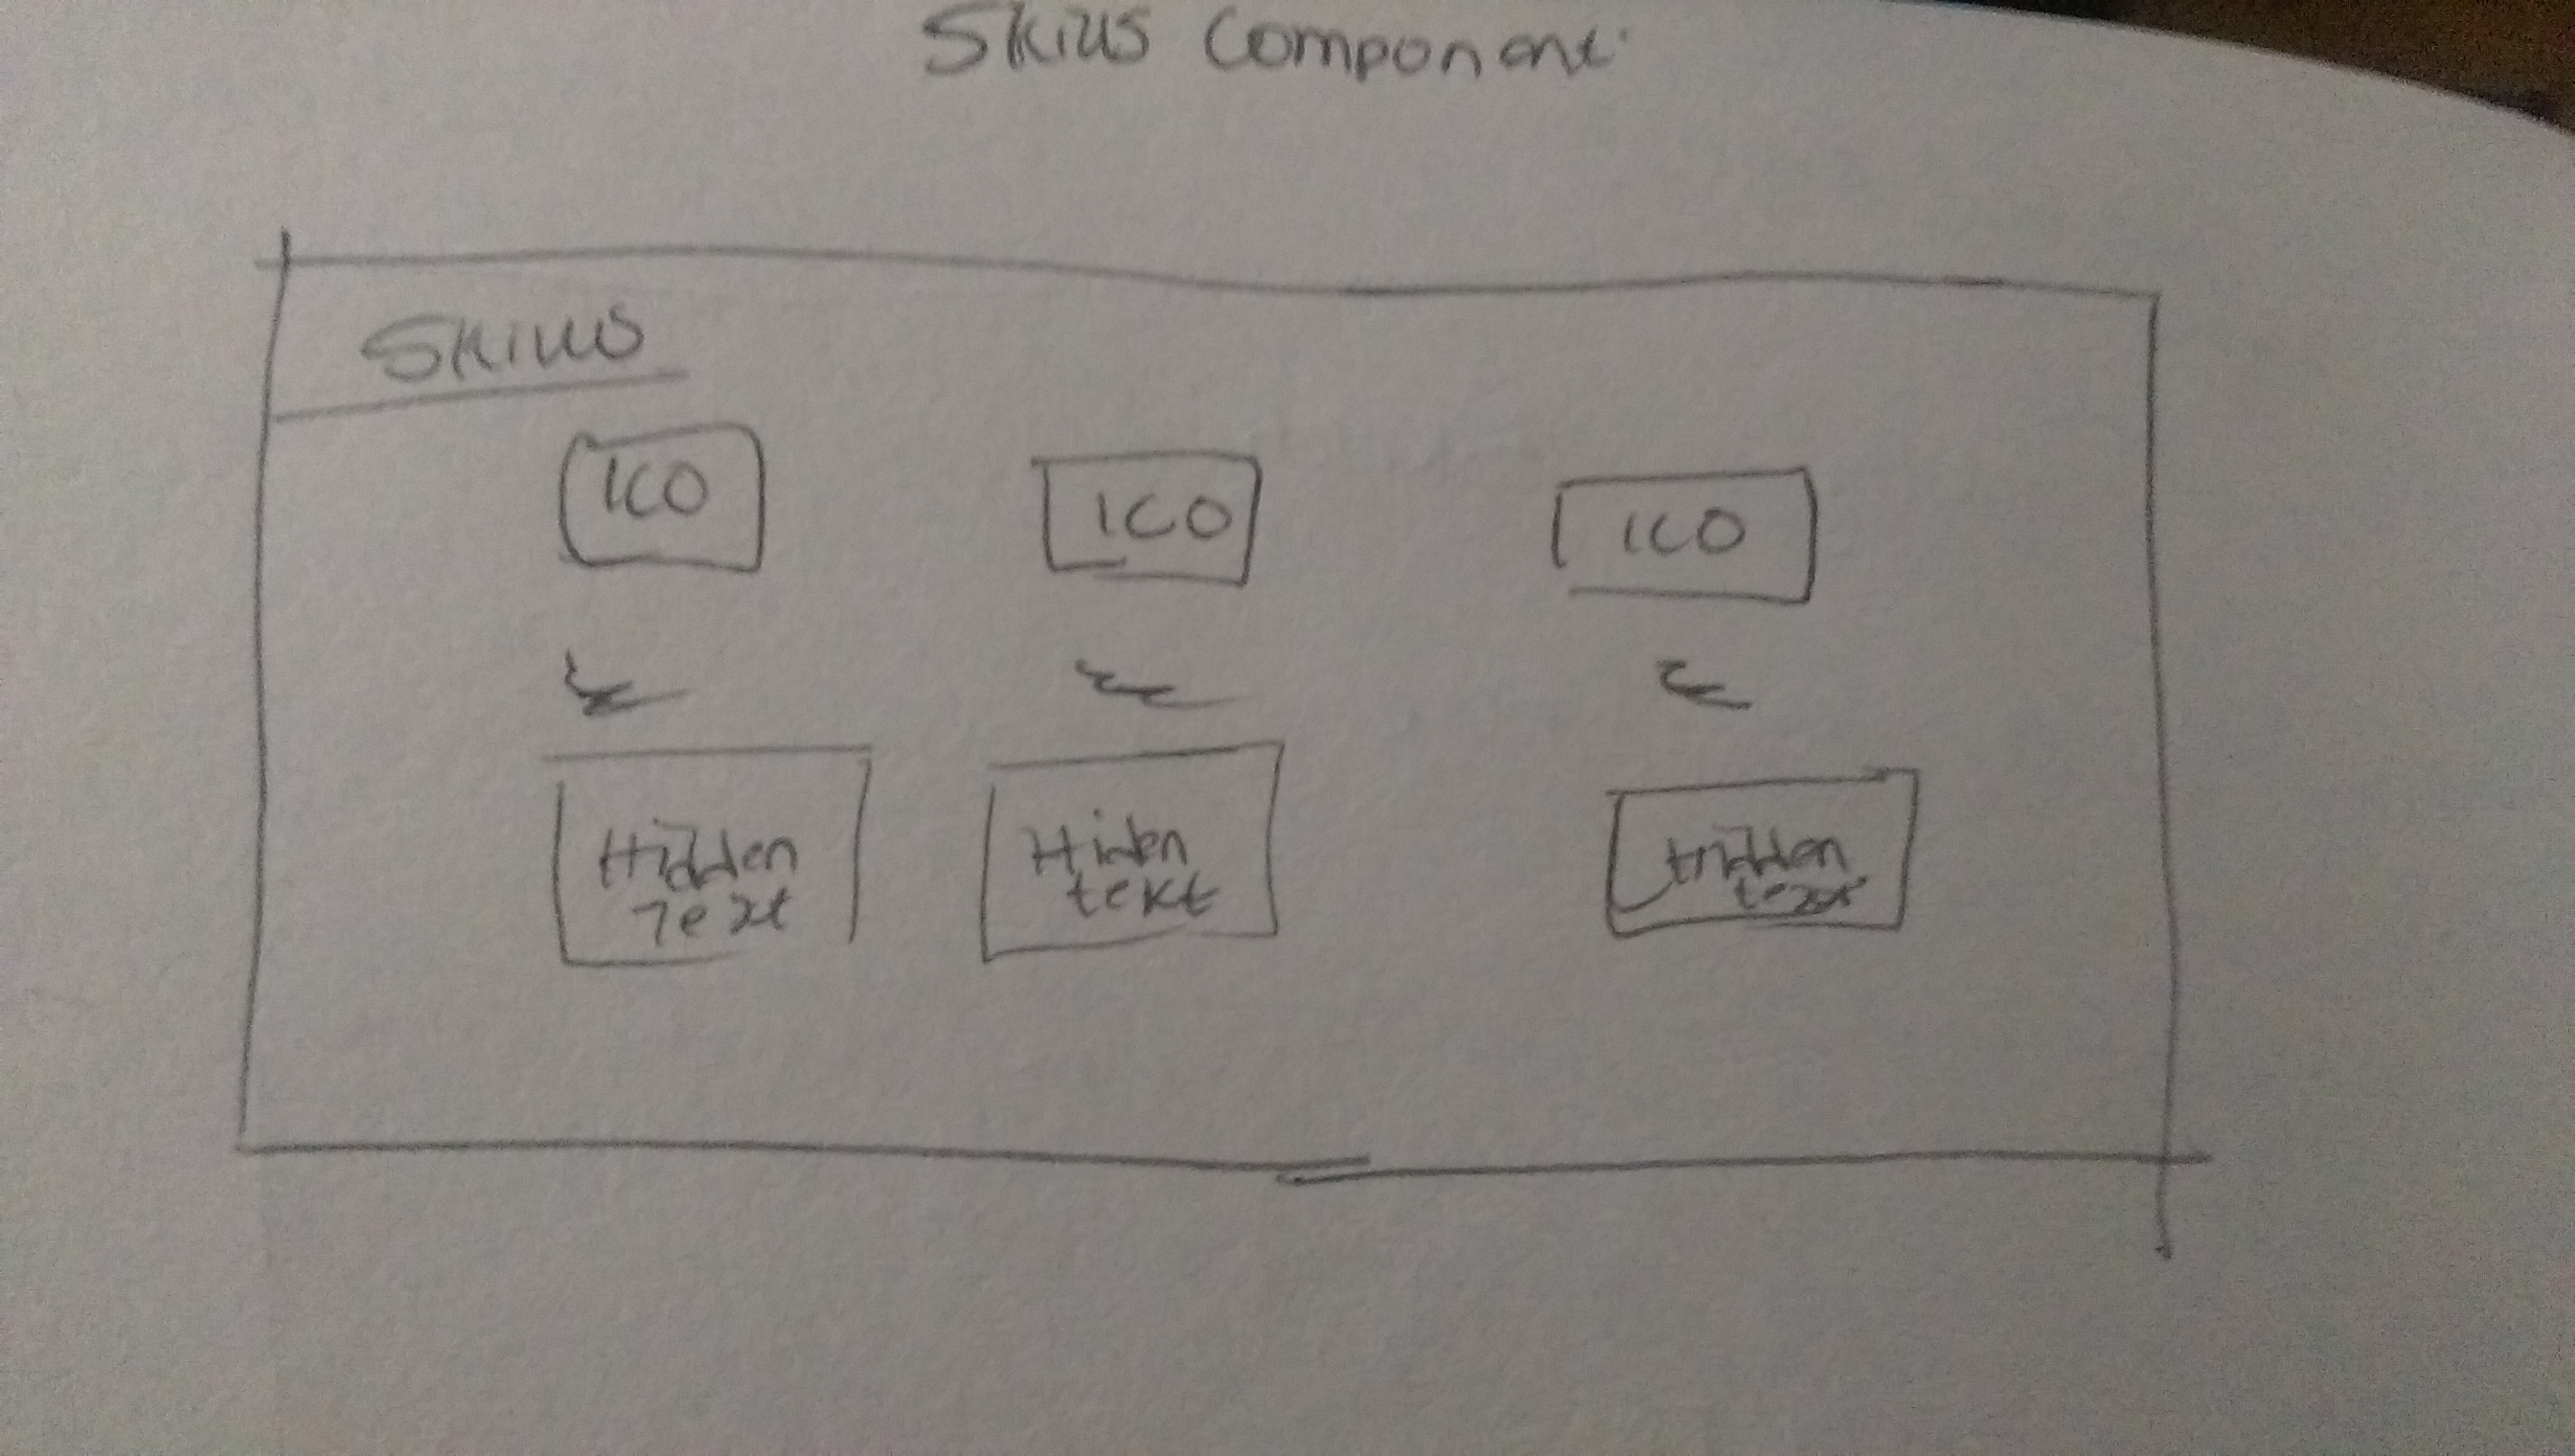 Skills Component
Skills
ICO
ICO
ICO
Hidden
Text
Hiden
text
Hidden
text